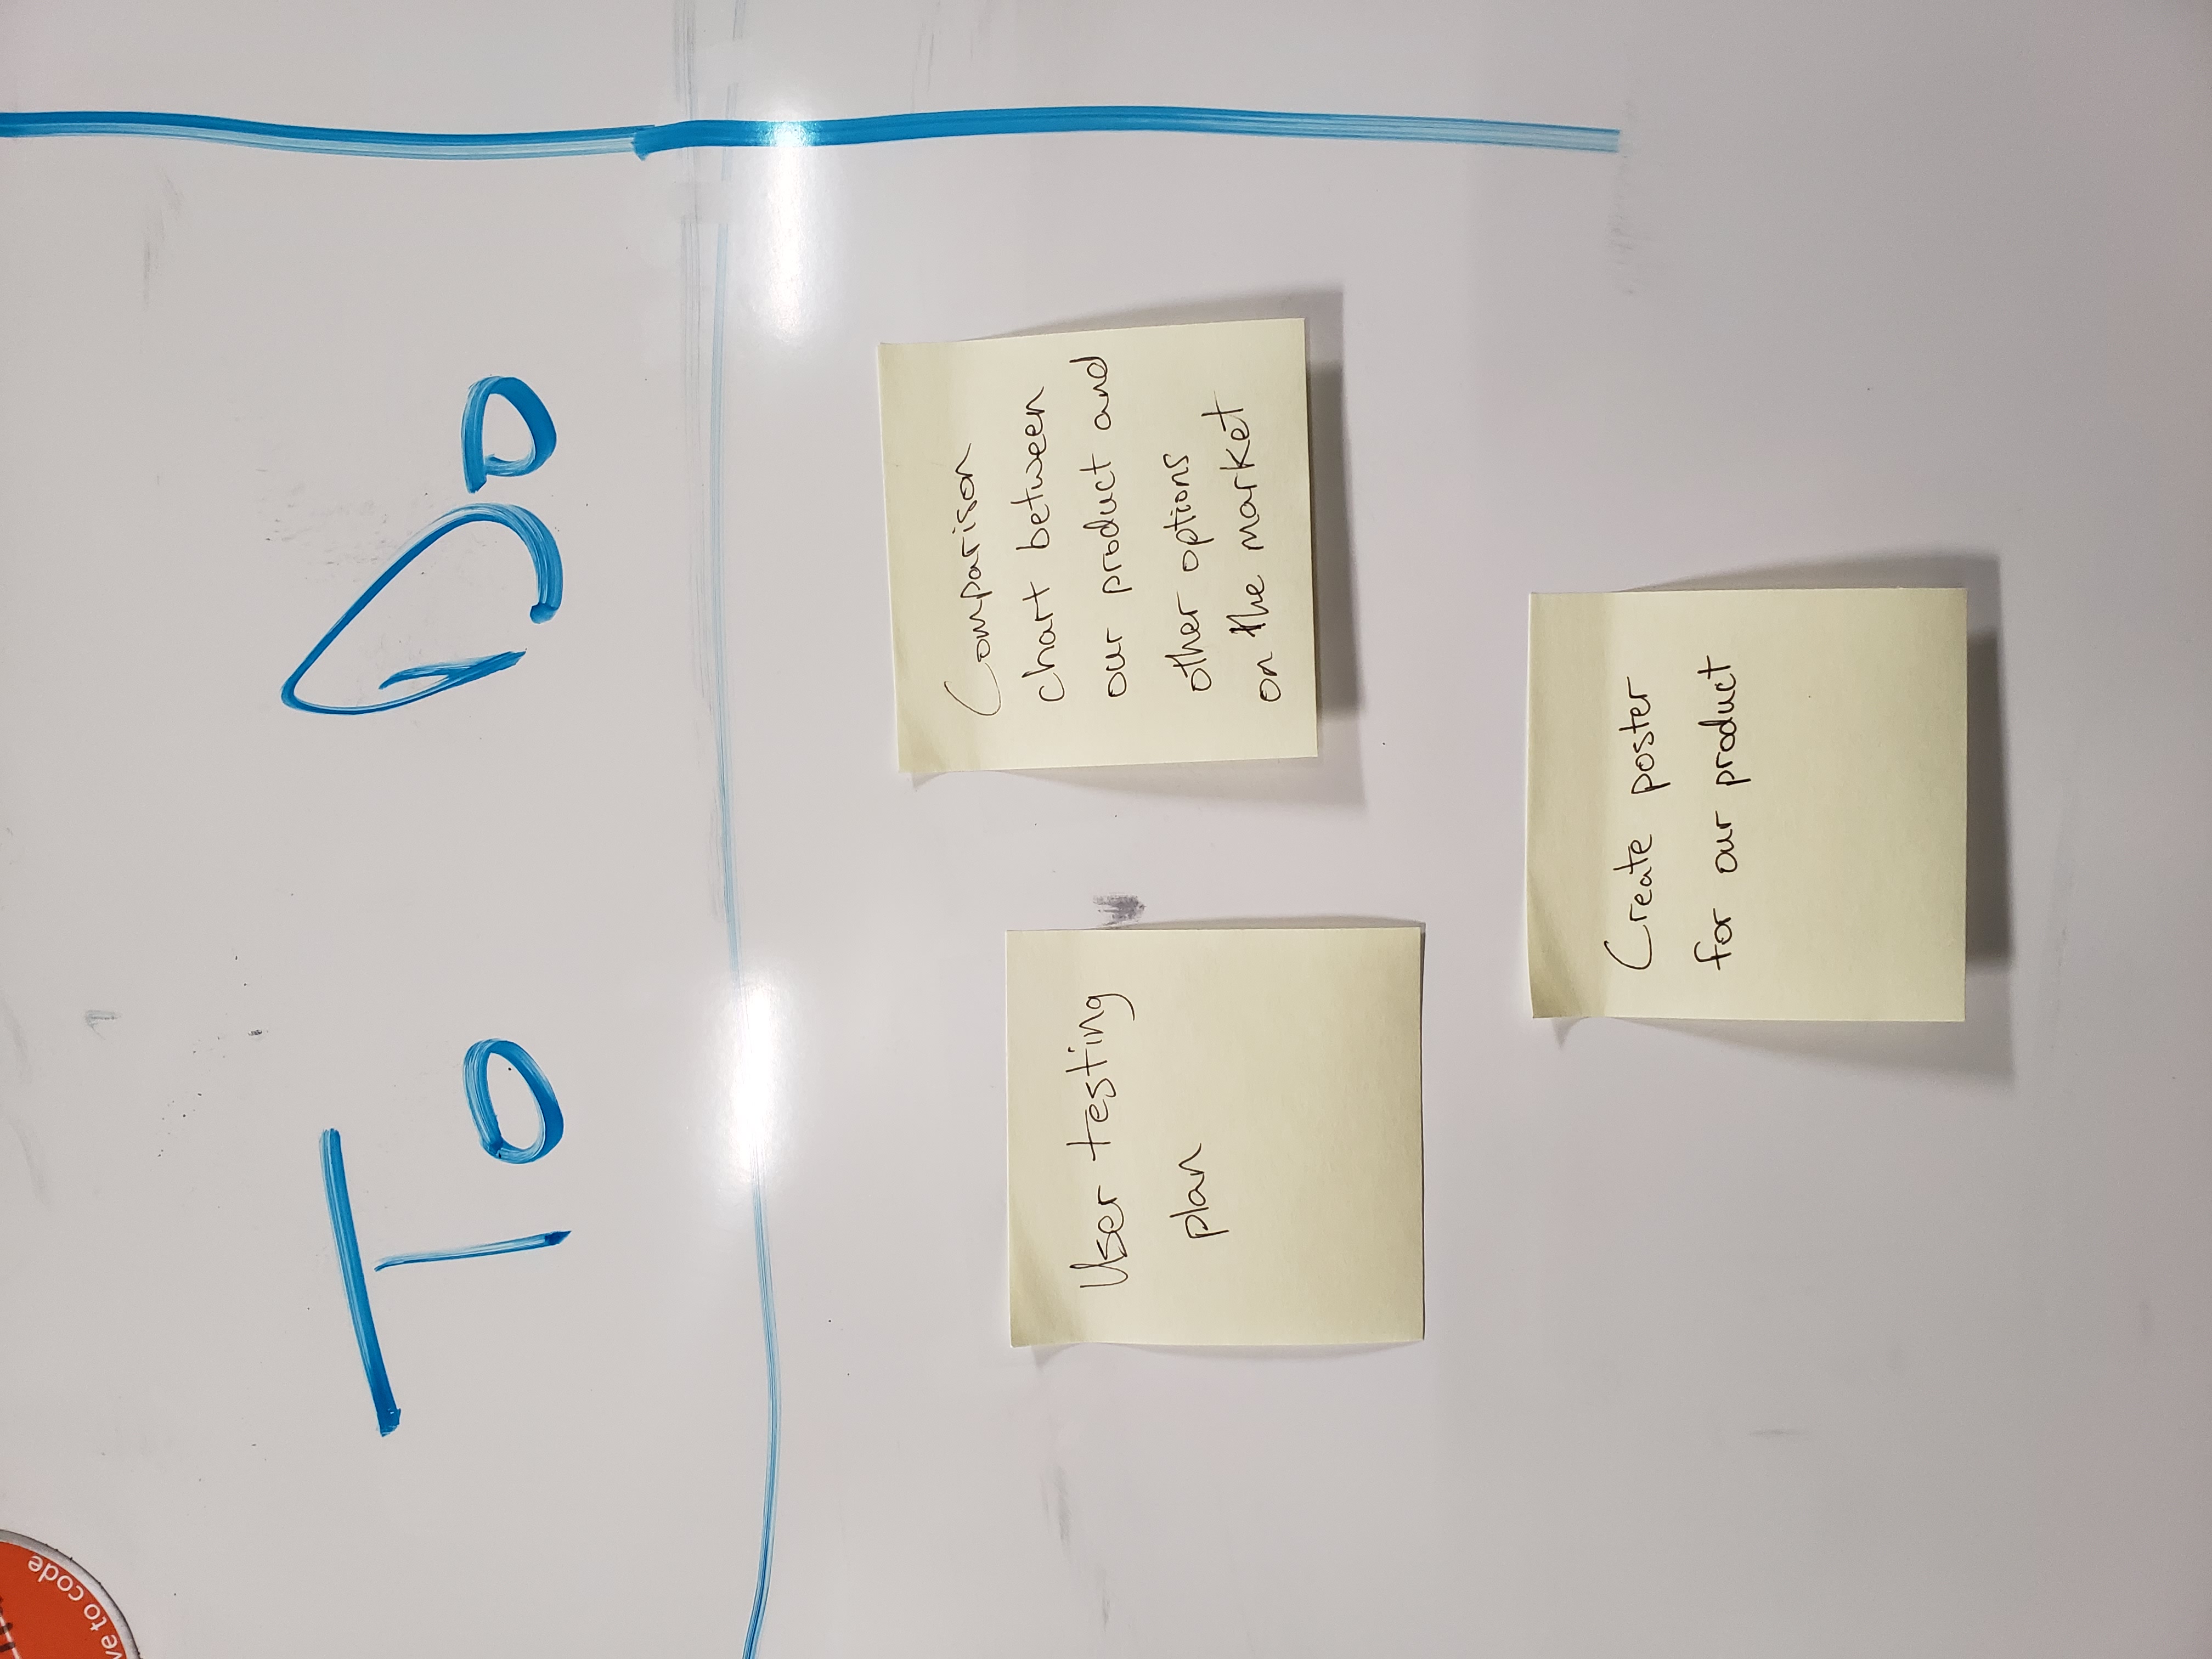 ve to code
To Do
User testing
plan
Comparison
chart between
our product and
other options
on the market
Create poster
for our product